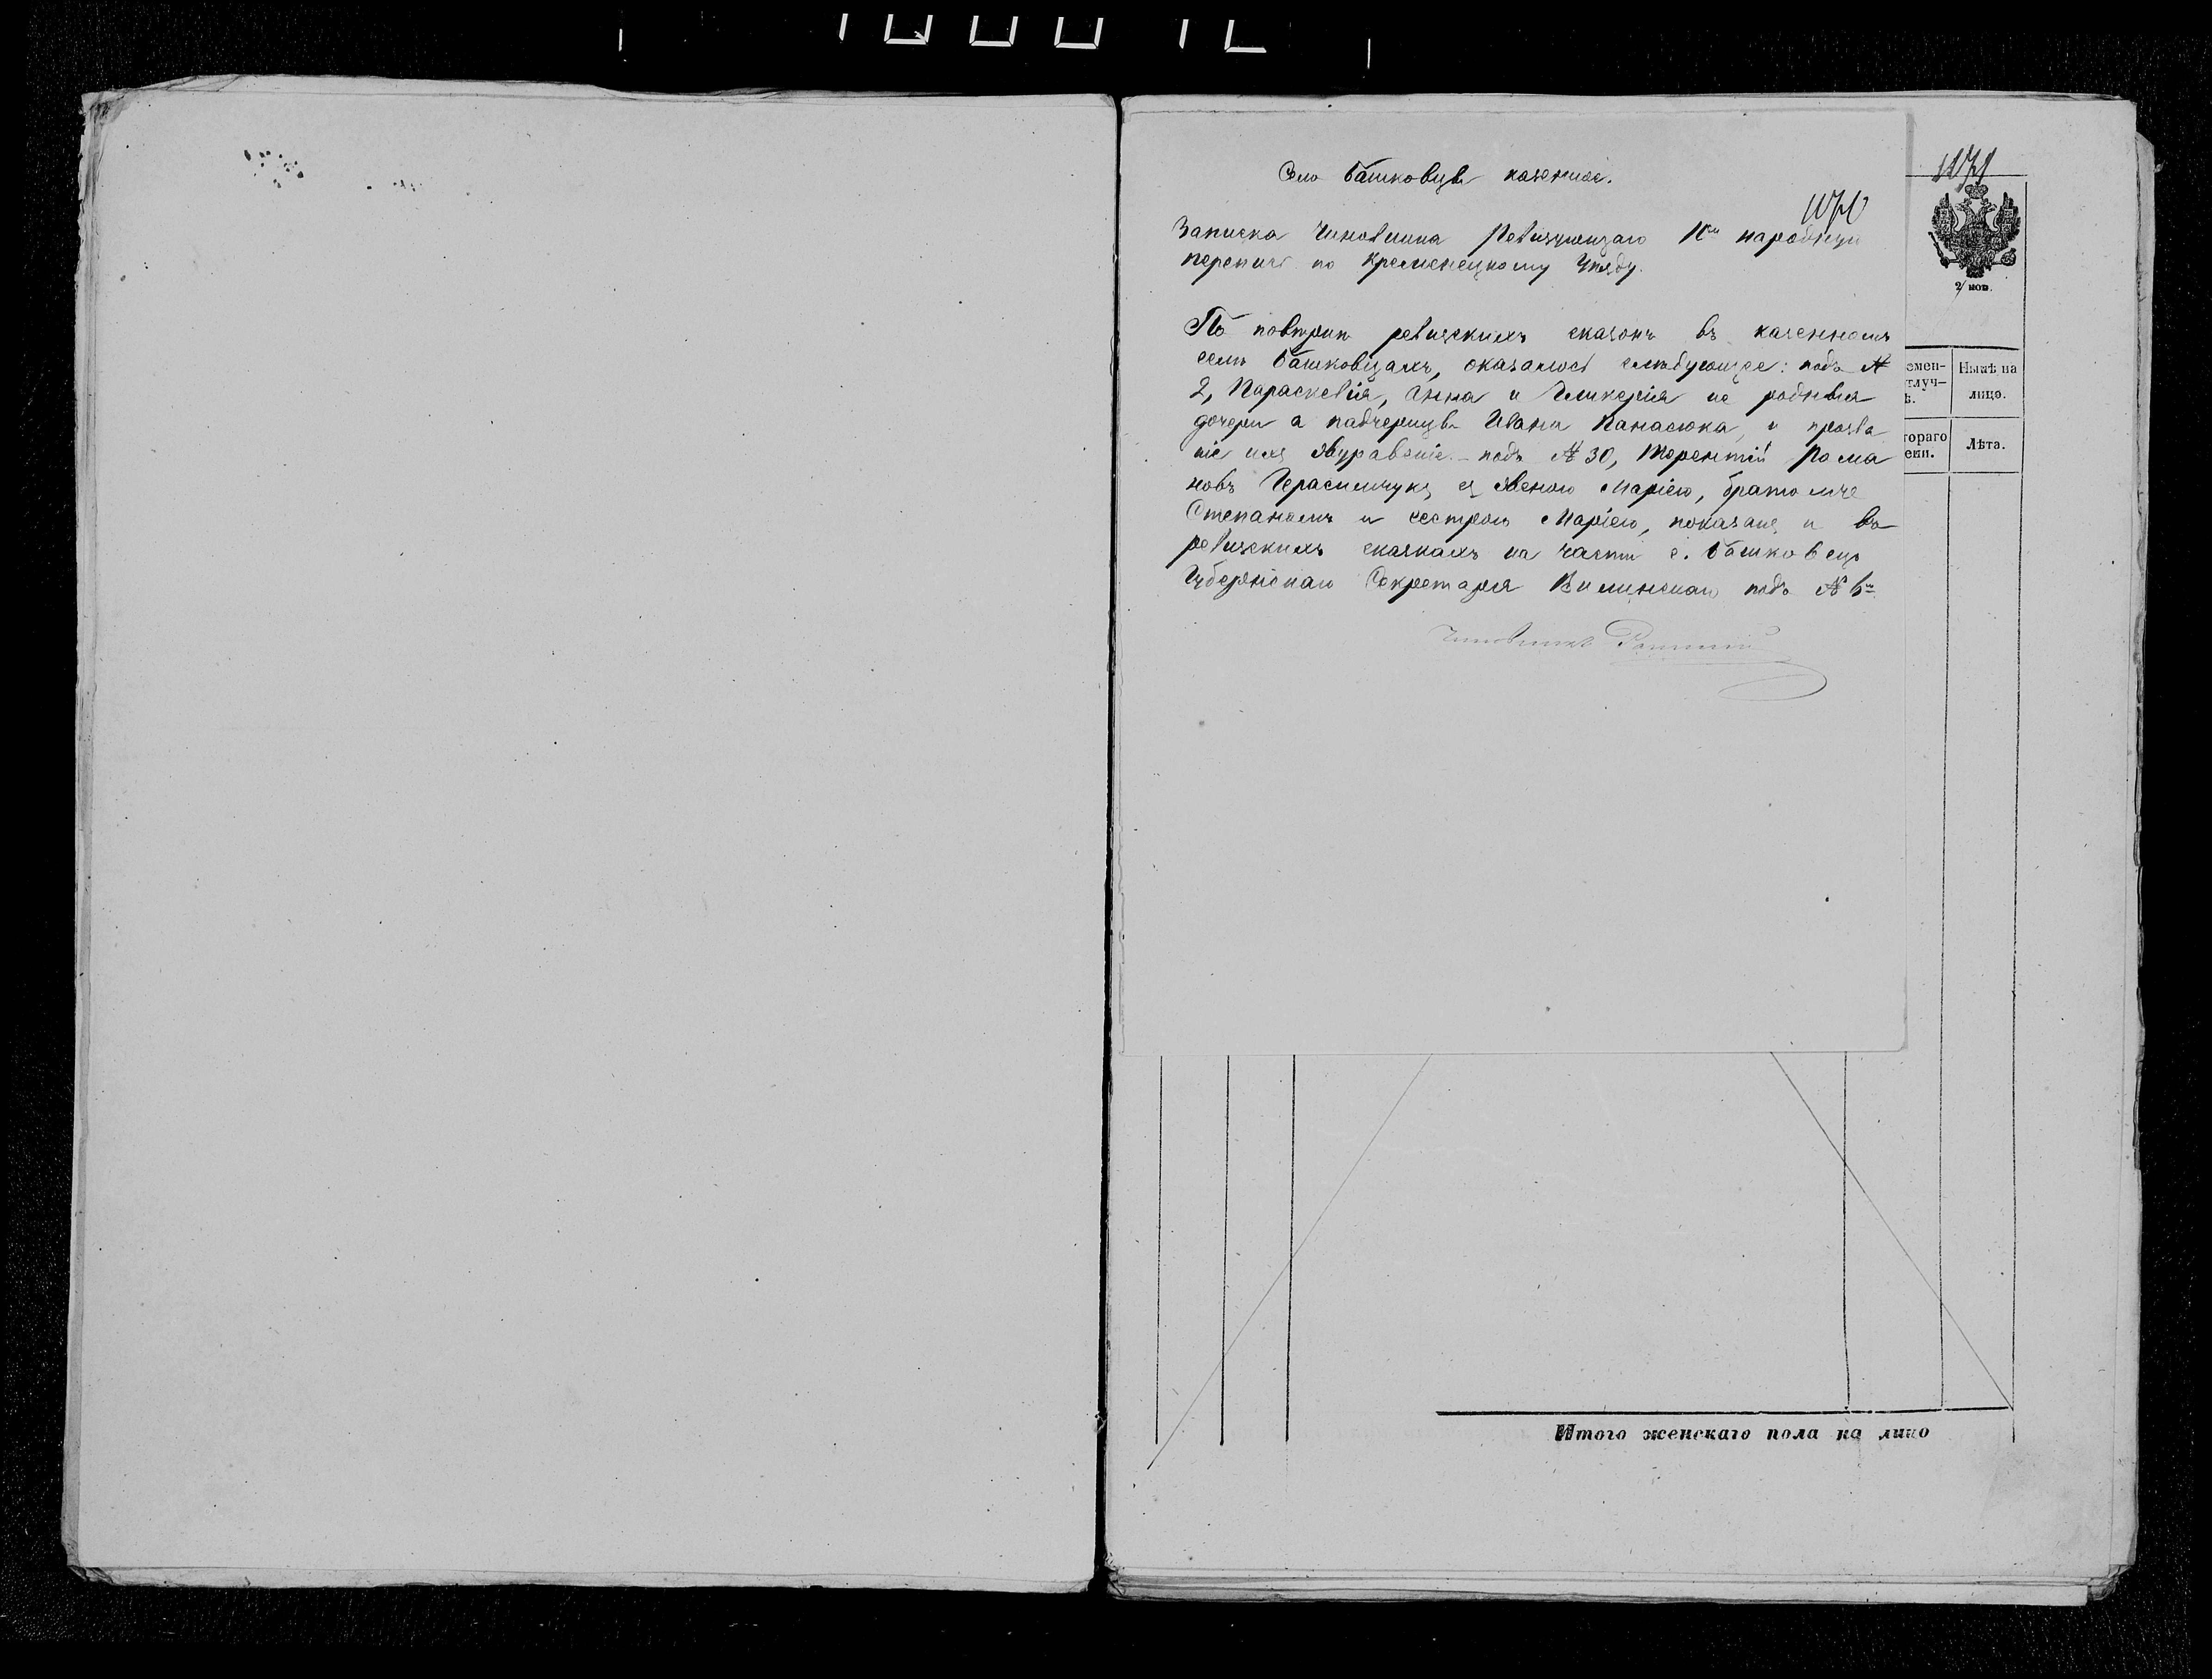 Село Башковцы казенное.
1070
Записка Чиновника Ревизующаго 10й народную
перепись по Кременецкому Уѣзду.
По повѣркѣ ревизскихъ сказокъ въ казенномъ
селѣ Башковцахъ, оказалось слѣдующее: подъ №
2, Параскевія, Анна и Гликерія не родныя
дочери а падчерицы Ивана Панасюка, и прозва
ніе ихъ
подъ № 30, Терентій Рома
новъ Герасимчукъ съ женою Маріею, братомъ
Степаномъ и сестрою Маріею, показанъ и въ
ревизскихъ сказкахъ на части с. Башковецъ
Губернскаго Секретаря Вилинскаго подъ № 6м
Чиновникъ
1071
2 коп.
емен-
тлуч-
ѣ.
Нынѣ на
лицо.
тораго
ени.
Лѣта.
Итого женскаго пола на лицо